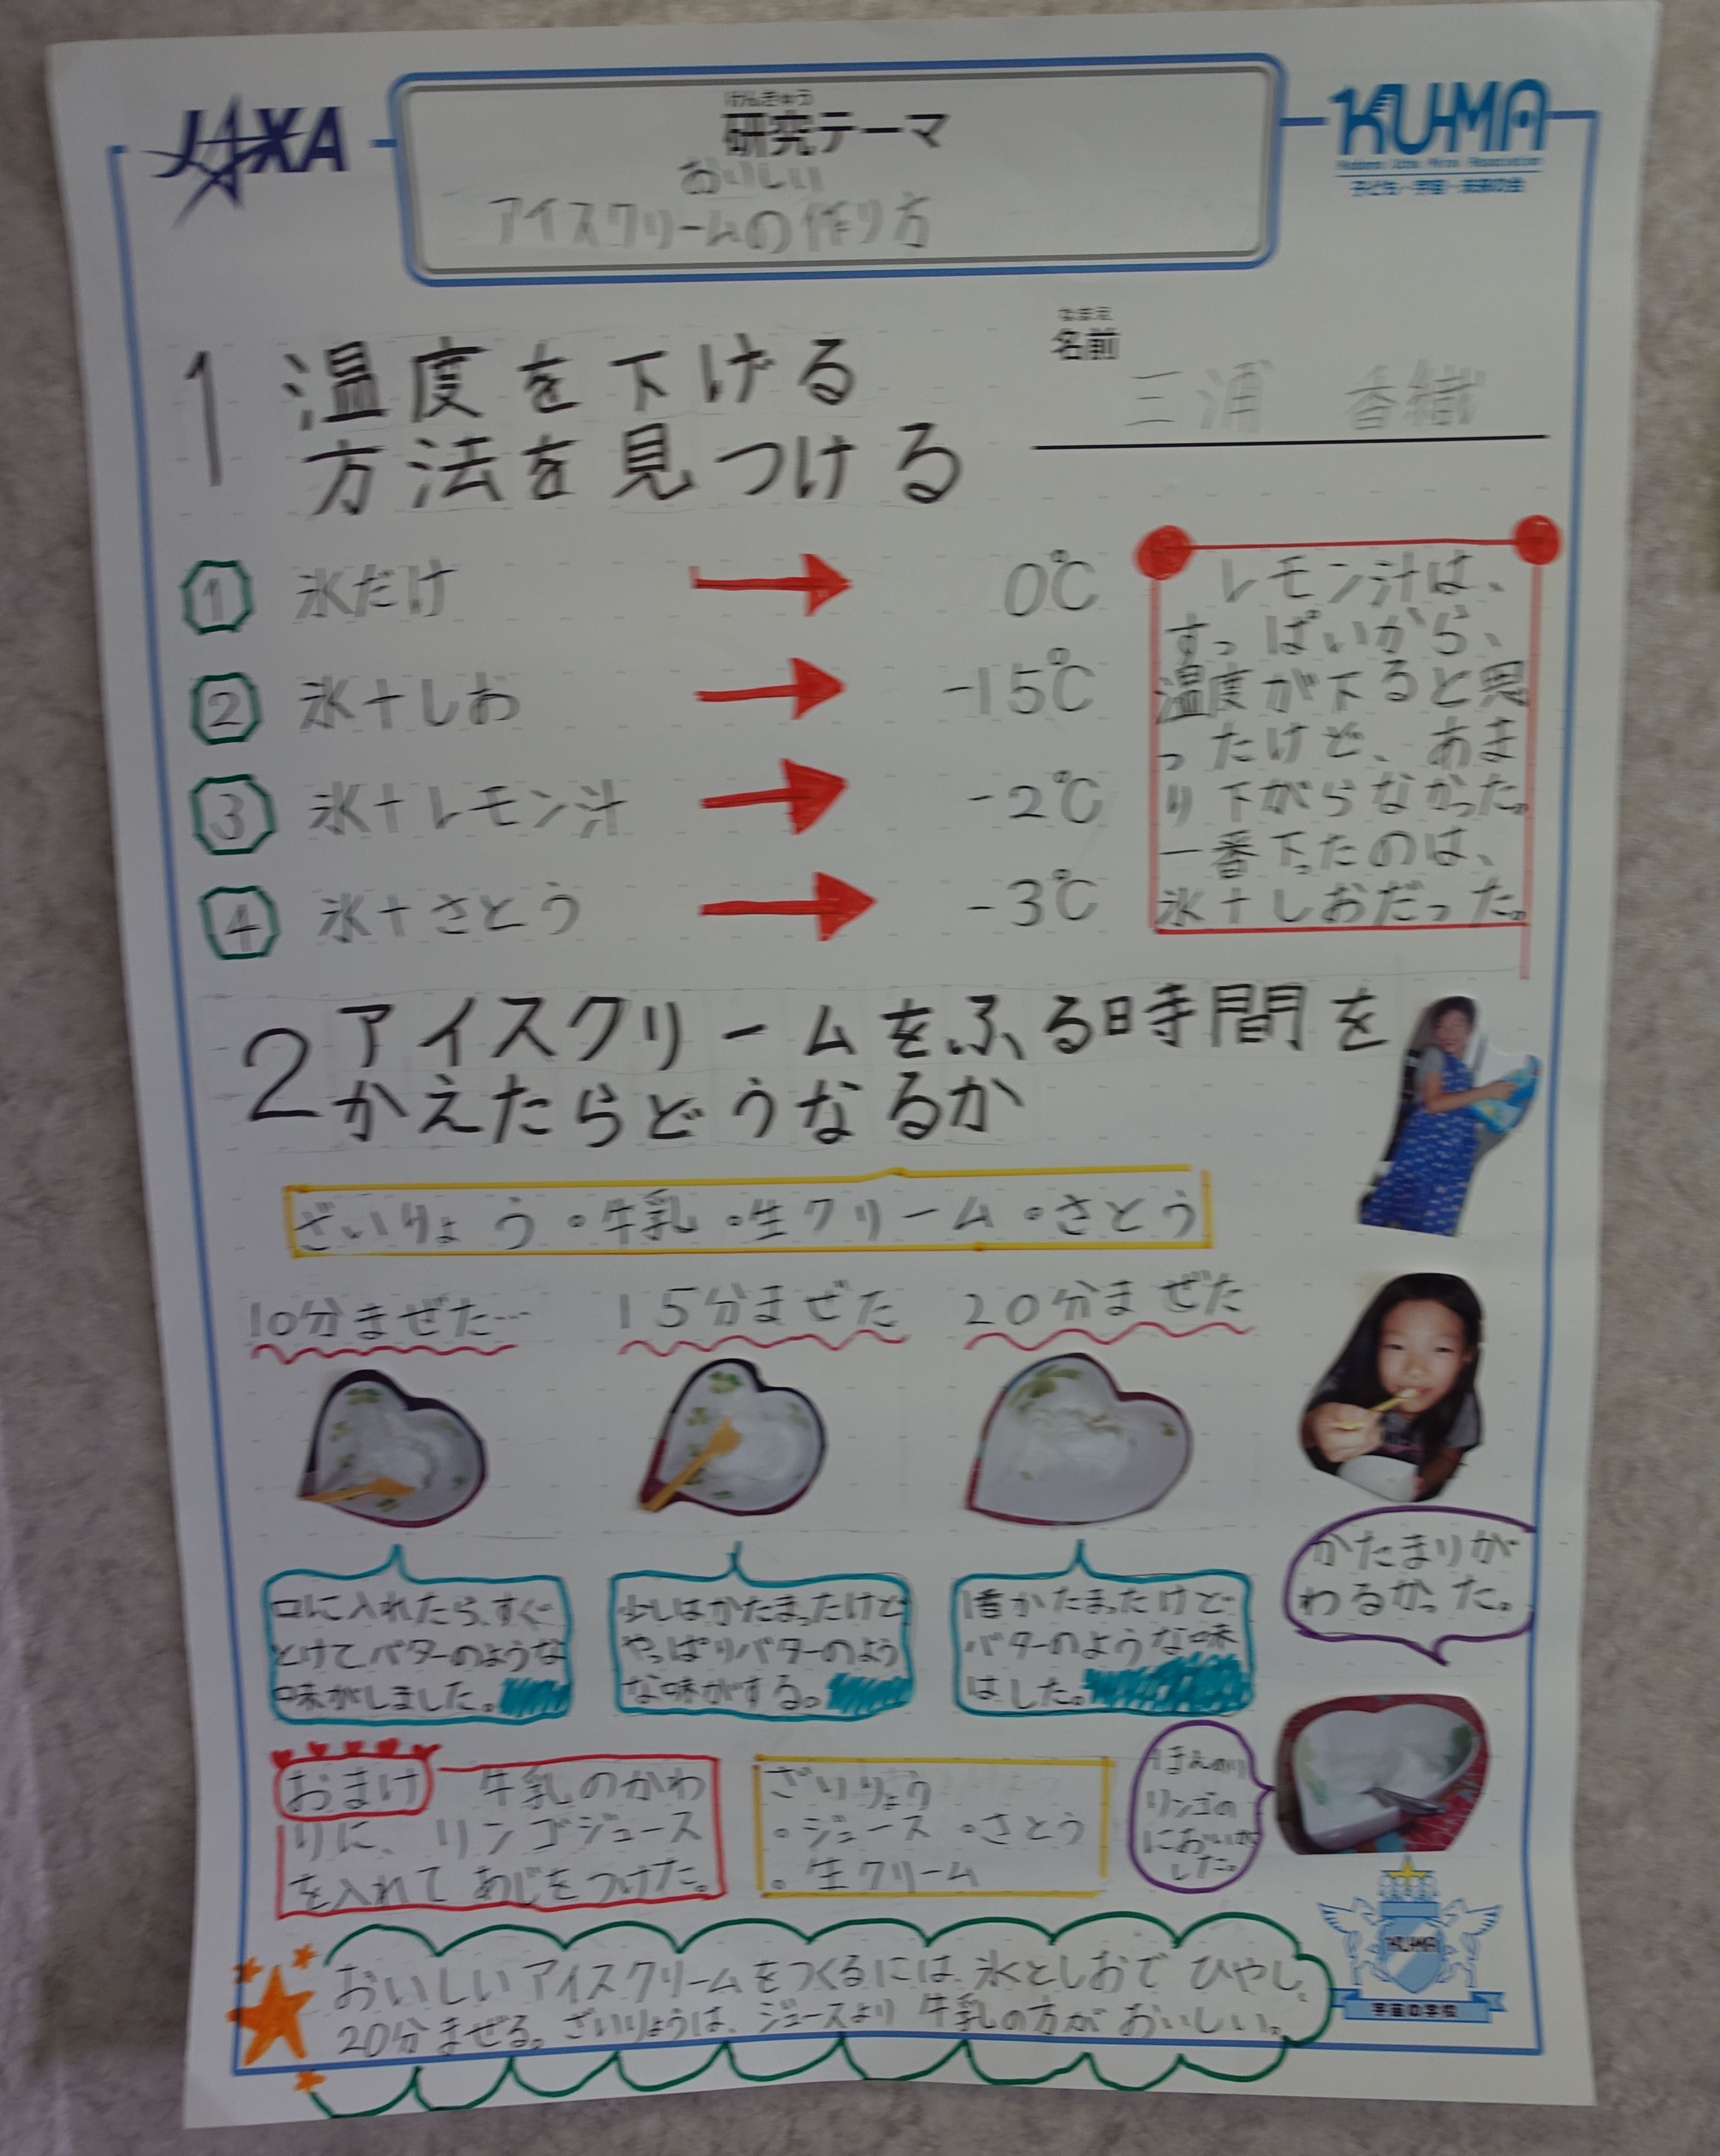 JAXA
けんきゅう
研究テーマ
おいしい
アイスクリームの作り方
KUMA
子ども・宇宙・未来の会
なまえ
名前
三浦 香織
1 温度を下げる
方法を見つける
① 氷だけ → 0℃
② 氷+しお → -15℃
③ 氷+レモン汁 → -2℃
④ 氷+さとう → -3℃
レモン汁は、
すっぱいから、
温度が下ると思
ったけど、あま
り下がらなかった。
一番下ったのは、
氷+しおだった。
2 アイスクリームをふる時間を
かえたらどうなるか
ざいりょう・牛乳・生クリーム・さとう
10分まぜた…
15分まぜた
20分まぜた
口に入れたら、すぐ
とけてバターのような
味がしました。
少しはかたまったけど
やっぱりバターのよう
な味がする。
1番かたまったけど
バターのような味
はした。
かたまりが
わるかった。
おまけ 牛乳のかわ
りに、リンゴジュース
を入れてあじをつけた。
ざいりょう
・ジュース ・さとう
・生クリーム
ほんのり
リンゴの
においが
した。
KUMA
宇宙の学校
おいしいアイスクリームをつくるには、氷としおでひやし、
20分まぜる。ざいりょうは、ジュースより牛乳の方がおいしい。